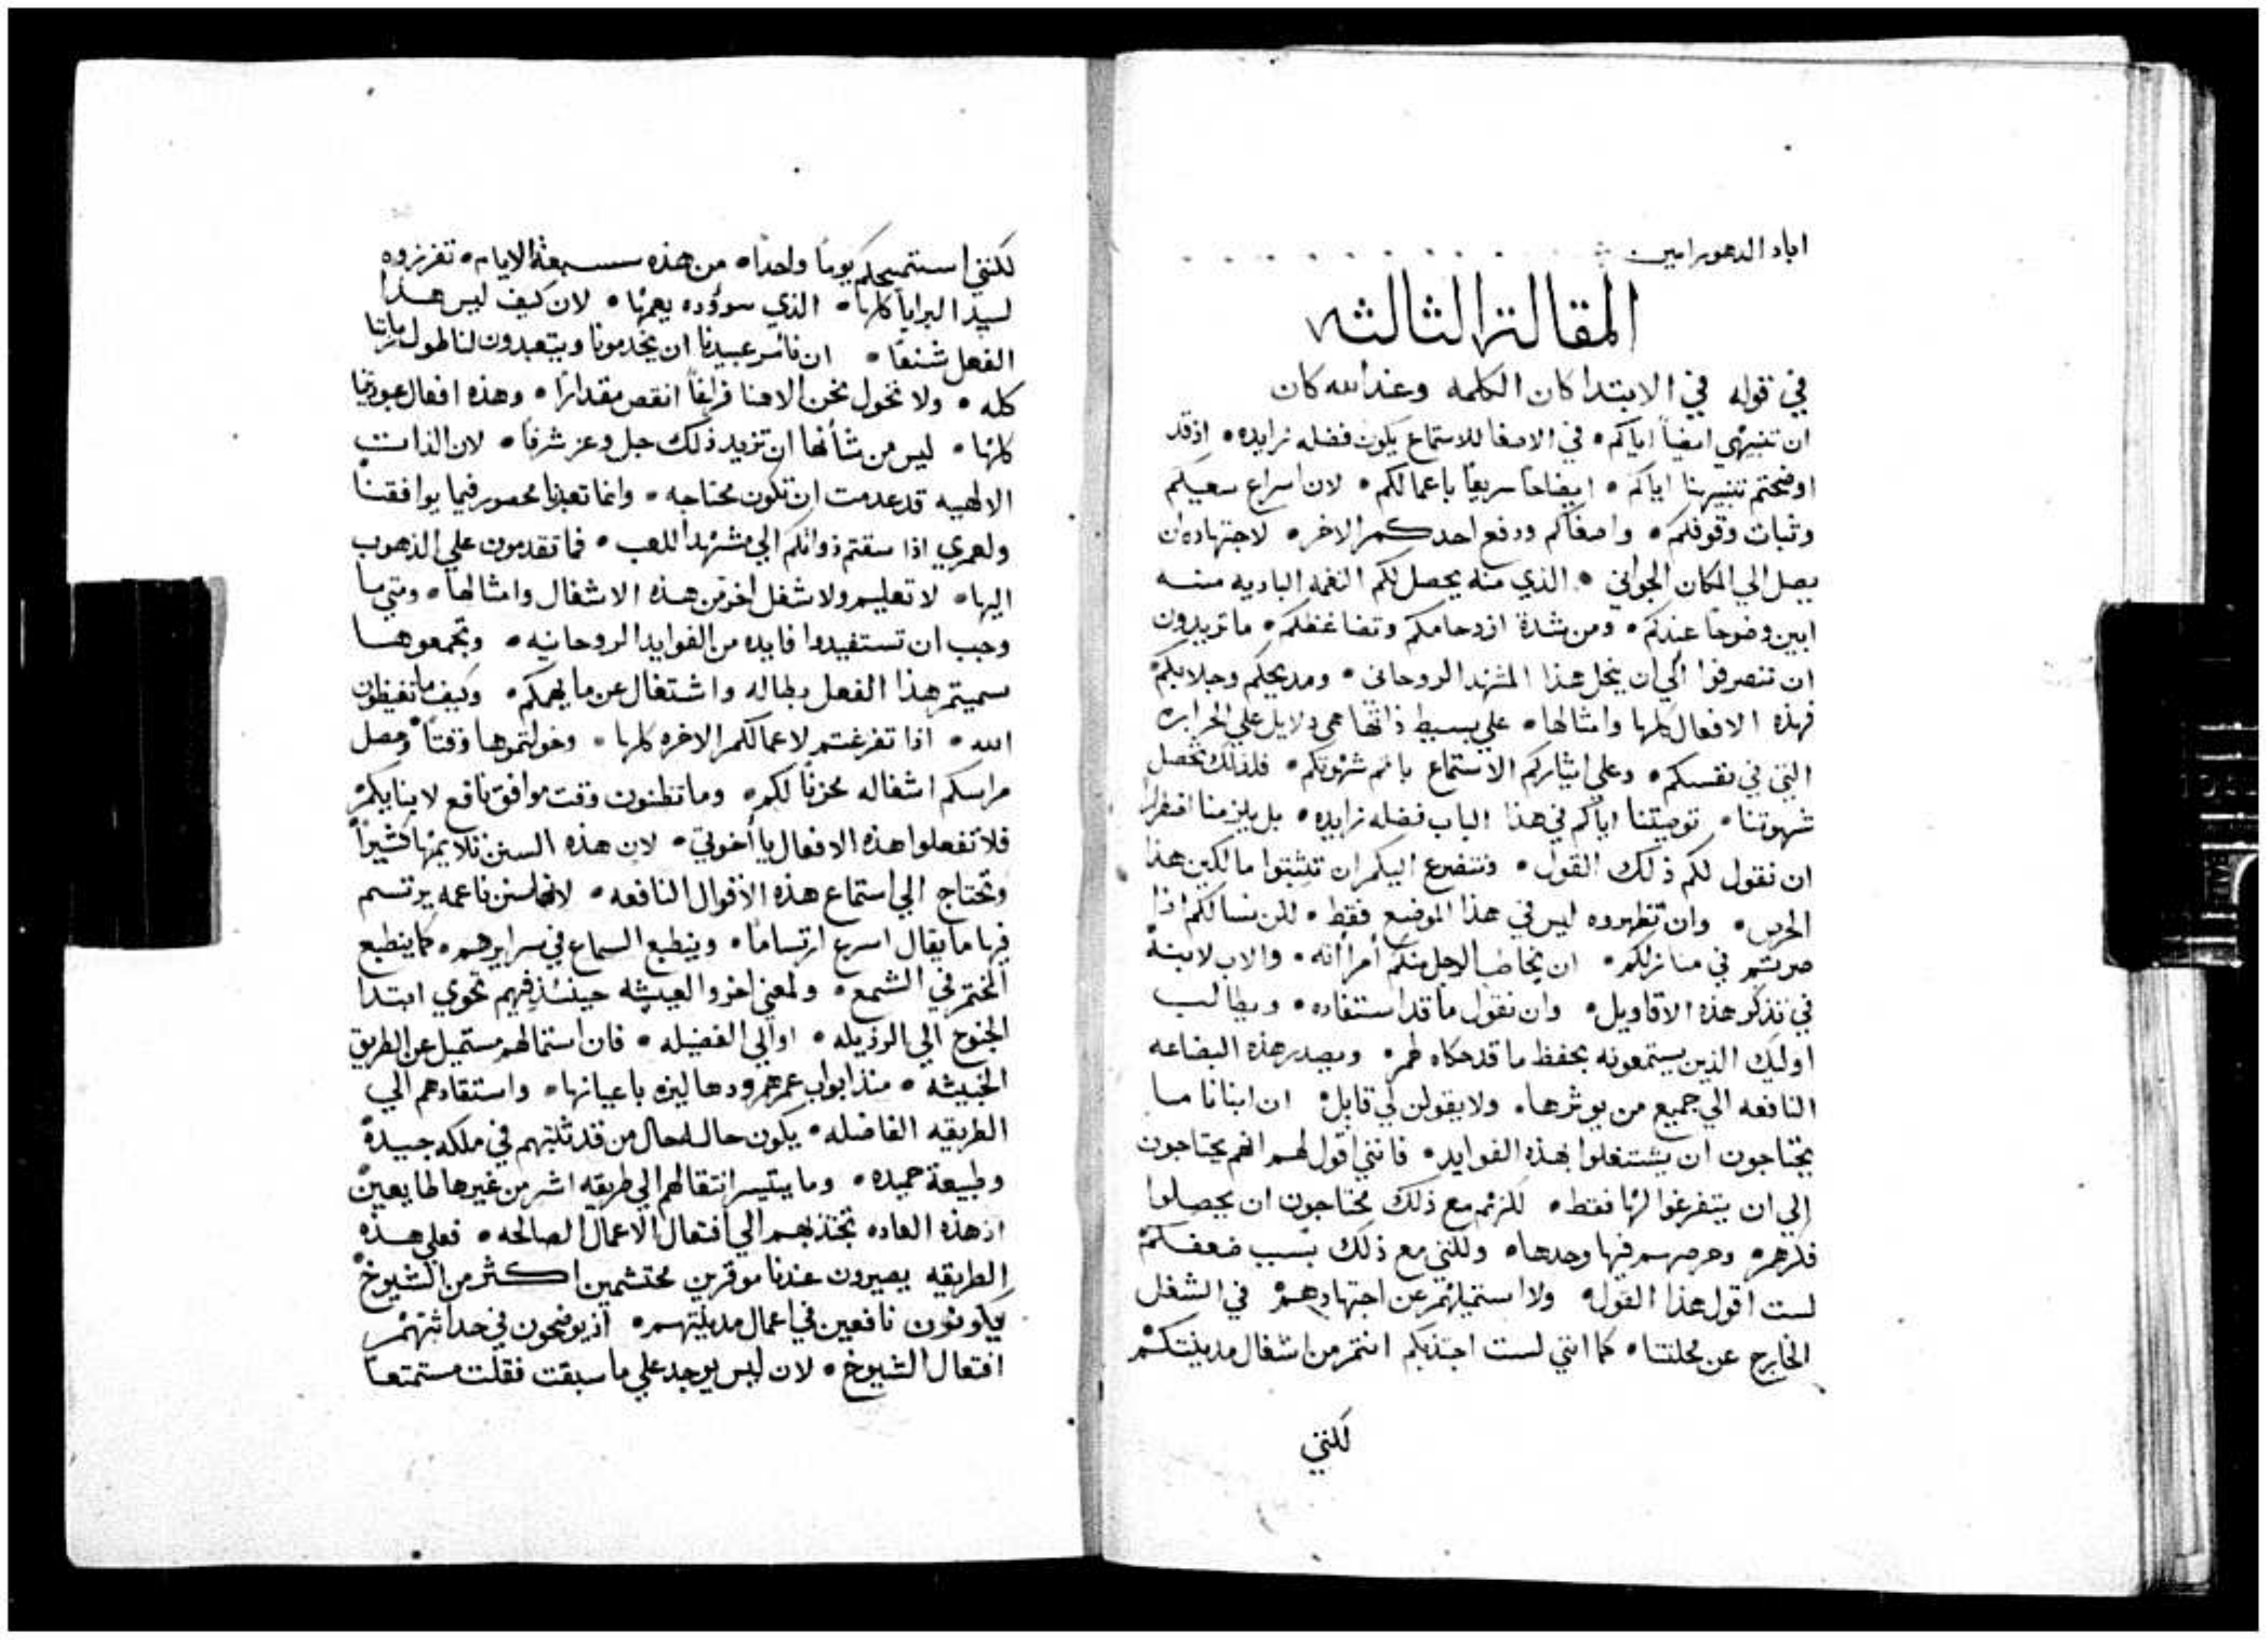 اباد الدهور امين
المقالة الثالثه
في قوله في الابتدا كان الكلمه وعند الله كان
ان تنبيهي ايضاً اياكم • في الاصغا للاستماع يكون فضله زايده • اذ قد
اوضحتم تنبيهنا اياكم • ايضاحاً سريعاً باعمالكم • لان اسراع سعيكم
وثبات وقوفكم • واصغاكم ودفع احدكم الاخر • لاجتهاده ان
يصل الي المكان الجواني • الذي منه يحصل لكم النغمه الباديه منه
ابين وضوحاً عندكم • ومن شدة ازدحامكم وتضاغطكم • ما تريدون
ان تنصرفوا الي ان ينحل هذا المشهد الروحاني • ومديحكم وجلابكم
فهذه الافعال كلها وامثالها • علي بسيط ذاتها هي دلايل علي الحراره
التي في نفسكم • وعلي ايثاركم الاستماع باتم شهوتكم • فلذلك تحصل
شهوتنا • توصيتنا اياكم في هذا الباب فضله زايده • بل يلزمنا اضطراراً
ان نقول لكم ذلك القول • ونتضرع اليكم ان تثبتوا مالكين هذا
الحرص • وان تظهروه ليس في هذا الموضع فقط • لكن نسالكم اذا
صرتم في منازلكم • ان يخاطب الرجل منكم امرأته • والاب لابنه
في تذكر هذه الاقاويل • وان نقول ما قد استفاده • ويطالب
اوليك الذين يستمعونه بحفظ ما قد حكاه لهم • ويصدر هذه البضاعه
النافعه الي جميع من يوثرها • ولا يقولن لي قايل • ان ابنانا ما
يحتاجون ان يشتغلوا بهذه الفوايد • فانني اقول لهم انهم يحتاجون
الي ان يتفرغوا لها فقط • لكنهم مع ذلك محتاجون ان يجعلوا
فكرهم وحرصهم فيها وحدها • ولكني مع ذلك بسبب ضعفكم
لست اقول هذا القول • ولا استميلهم عن اجتهادهم في الشغل
الخارج عن محلتنا • كما انني لست اجتذبكم انتم من اشغال مدينتكم
لكنني
لكنني استميحكم يوماً واحداً • من هذه سبعة الايام • تفرزوه
لسيد البرايا كلها • الذي سودده يعمها • لان كيف ليس هذا
الفعل شنعاً • ان نأمر عبيدنا ان يخدمونا ويتعبدون لنا طول زماننا
كله • ولا نخول نحن الاهنا فراغاً انقص مقداراً • وهذه افعال عبوديتنا
كلها • ليس من شأنها ان تزيد ذلك جل وعز شرفاً • لان الذات
الالهيه قد عدمت ان تكون محتاجه • وانما تعبدنا محصور فيما يوافقنا
ولعمري اذا سقتم ذواتكم الي مشهد اللعب • فما تقدمون علي الذهوب
اليها • لا تعليم ولا شغل اخر من هذه الاشغال وامثالها • ومتي ما
وجب ان تستفيدوا فايده من الفوايد الروحانيه • وتجمعوها
سميتم هذا الفعل بطاله واشتغال عن ما يهمكم • وكيف ما تغيظون
الله • اذا تفرغتم لاعمالكم الاخره كلها • وخولتموها وقتاً وحصل
مراسكم اشغاله محزناً لكم • وما تظنون وقت موافق نافع لابنايكم
فلا تفعلوا هذه الافعال يا اخوتي • لان هذه السنن تلايمها كثيراً
وتحتاج الي استماع هذه الاقوال النافعه • لانها سن ناعمه يرتسم
فيها ما يقال اسرع ارتساماً • وينطبع السماع في سرايرهم • كما ينطبع
الختم في الشمع • ولمعني اخر والعيشه حينئذ فيهم تحوي ابتدا
الجنوح الي الرذيله • او الي الفضيله • فان استمالهم مستميل عن الطريق
الخبيثه • منذ ابواب عمرهم ودهاليزه باعيانها • واستقادهم الي
الطريقه الفاضله • يكون حاله حال من قد ثلتهم في ملكه جيده
وطبيعة حميده • وما يتيسر انتقالهم الي طريقه اشر من غيرها لما يعين
اذ هذه العاده تجذبهم الي افتعال الاعمال الصالحه • فعلي هذه
الطريقه يصيرون عندنا موقرين محتشمين اكثر من الشيوخ
ويكونون نافعين في اعمال مدينتهم • اذ يوضحون في حداثتهم
افتعال الشيوخ • لان ليس يوجد علي ما سبقت فقلت مستمتعاً